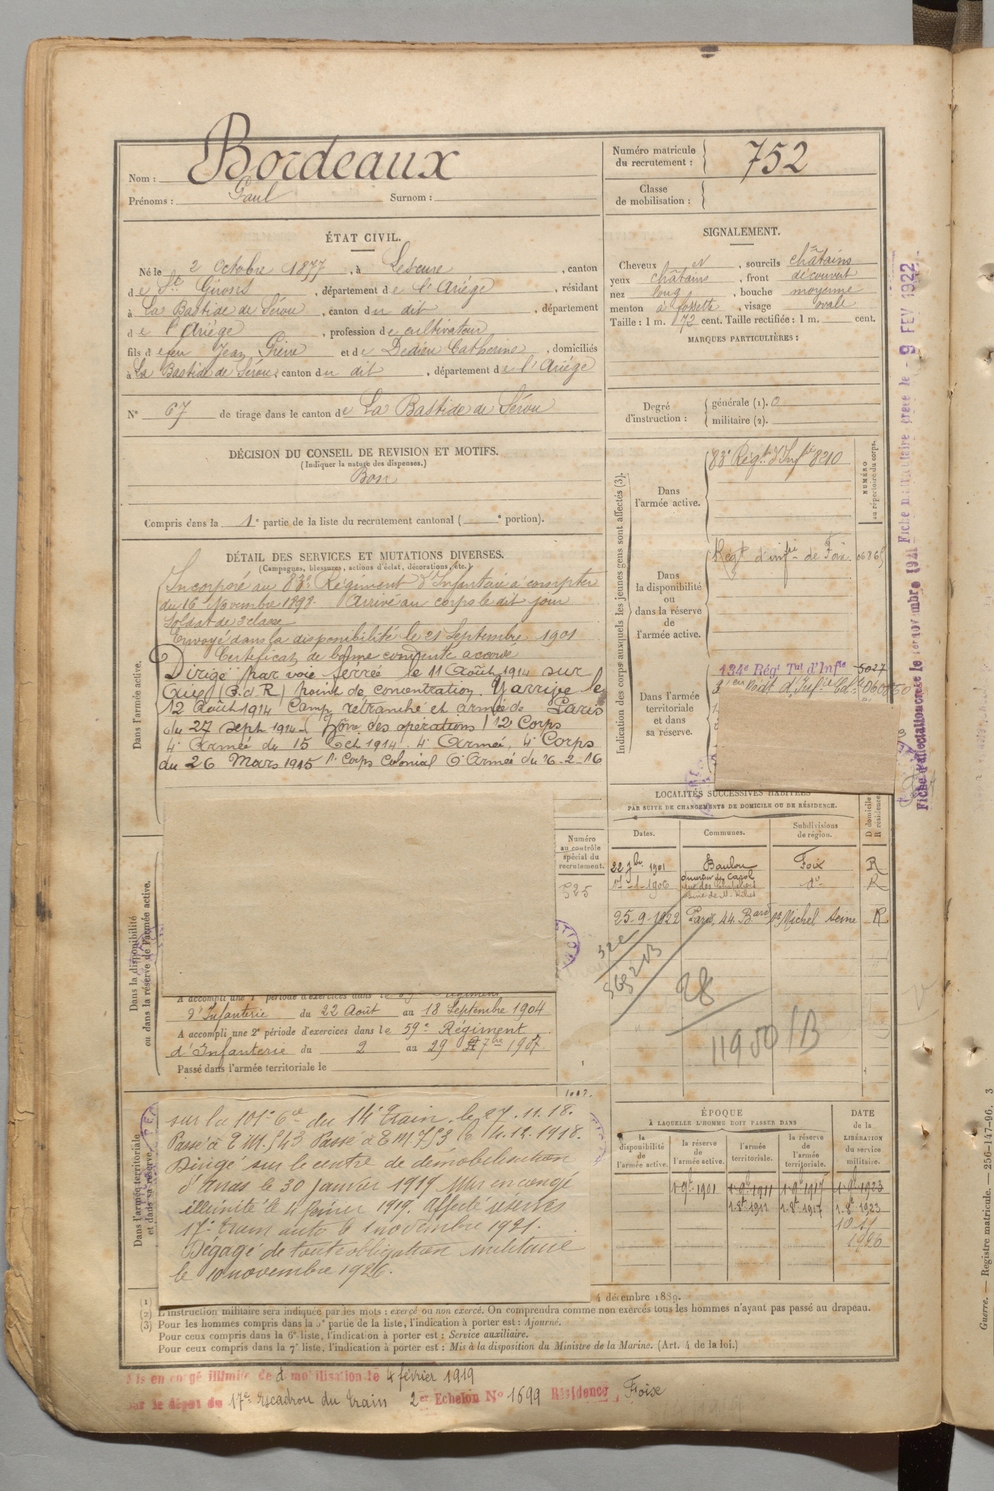 Nom : Bordeaux
Prénoms : Paul Surnom :
Numéro matricule du recrutement : 752
Classe de mobilisation :
ÉTAT CIVIL.
Né le 2 octobre 1877, à Lescure, canton
de St Girons, département de l'Ariège, résidant
à La Bastide de Sérou, canton du dit, département
de l'Ariège, profession de cultivateur
fils de feu Jean Pierre et de Dedieu Catherine, domiciliés
à La Bastide de Sérou, canton du dit, département de l'Ariège
N° 67 de tirage dans le canton de La Bastide de Sérou
SIGNALEMENT.
Cheveux N, sourcils châtains
yeux châtains, front découvert
nez long, bouche moyenne
menton à fossette, visage ovale
Taille : 1 m. 72 cent. Taille rectifiée : 1 m. cent.
MARQUES PARTICULIÈRES :
Degré d'instruction : générale (1). 0
militaire (2).
DÉCISION DU CONSEIL DE REVISION ET MOTIFS.
(Indiquer la nature des dispenses.)
Bon
Compris dans la 1e partie de la liste du recrutement cantonal ( e portion).
DÉTAIL DES SERVICES ET MUTATIONS DIVERSES.
(Campagnes, blessures, actions d'éclat, décorations, etc.)
Dans l'armée active.
Incorporé au 83e Régiment d'Infanterie à compter
du 16 Novembre 1898. Arrivé au corps le dit jour
Soldat de 2e classe
Envoyé dans la disponibilité le 21 Septembre 1901
Certificat de bonne conduite accordé
Dirigé par voie ferrée le 11 Août 1914 sur
(G.d.R) point de concentration. Y arrive le
12 Août 1914 Camp retranché et armée de Paris
du 27 sept 1914 Zone des opérations 12 Corps
4e Armée du 15 Oct 1914. 4e Armée, 4e Corps
du 26 Mars 1915 1er Corps Colonial 6e Armée du 16-2-16
Indication des corps auxquels les jeunes gens sont affectés (3).
NUMÉRO au répertoire du corps.
Dans l'armée active.
83e Régt d'Inftie 8210
Dans la disponibilité ou dans la réserve de l'armée active.
Régt d'infie de Foix
Dans l'armée territoriale et dans sa réserve.
134e Régt Tal d'Infie 5027
Fiche matriculaire créée le - 9 FEV 1922
Fiche d'affectation créée le 1er novembre 1921
Dans la disponibilité ou dans la réserve de l'armée active.
Numéro au contrôle spécial du recrutement.
525
d'Infanterie du 22 Août au 18 Septembre 1904
A accompli une 2e période d'exercices dans le 59e Régiment
d'Infanterie du 2 au 29 7bre 1907
Passé dans l'armée territoriale le
LOCALITÉS SUCCESSIVES HABITÉES
PAR SUITE DE CHANGEMENTS DE DOMICILE OU DE RÉSIDENCE.
Dates. Communes. Subdivisions de région. D domicile R résidence
22 7bre 1901 Baulou Foix R
1er-1-1906 do R
25-9-1922 Paris, 44 Bard St Michel Seine R
28
11950/B
Dans l'armée territoriale et dans sa réserve.
sur le 101e Cie du 14e Train le 27.11.18.
Passé à T.M. 543 Passé à T.M. 753 le 14.12.1918.
Dirigé sur le centre de démobilisation
d'Arras le 30 janvier 1919 Mis en congé
illimité le 4 février 1919. Affecté réserves
17e Train auto le 1 novembre 1921.
Dégagé de toute obligation militaire
le 10 novembre 1926.
ÉPOQUE
À LAQUELLE L'HOMME DOIT PASSER DANS
DATE de la LIBÉRATION du service militaire.
la disponibilité de l'armée active. la réserve de l'armée active. l'armée territoriale. la réserve de l'armée territoriale.
1 9bre 1901 1 9bre 1911 1 9bre 1917 1 9bre 1923
1 8bre 1911 1 8bre 1917 1 8bre 1923
10 11
1926
4 décembre 1889.
(1)
(2) L'instruction militaire sera indiquée par les mots : exercé ou non exercé. On comprendra comme non exercés tous les hommes n'ayant pas passé au drapeau.
(3) Pour les hommes compris dans la 5e partie de la liste, l'indication à porter est : Ajourné.
Pour ceux compris dans la 6e liste, l'indication à porter est : Service auxiliaire.
Pour ceux compris dans la 7e liste, l'indication à porter est : Mis à la disposition du Ministre de la Marine. (Art. 4 de la loi.)
Mis en congé illimité de démobilisation le 4 février 1919
sur le dépôt du 17e Escadron du train 2er Echelon N° 1599 Résidence, Foix
Guerre. — Registre matricule. — 256-147-96. 3